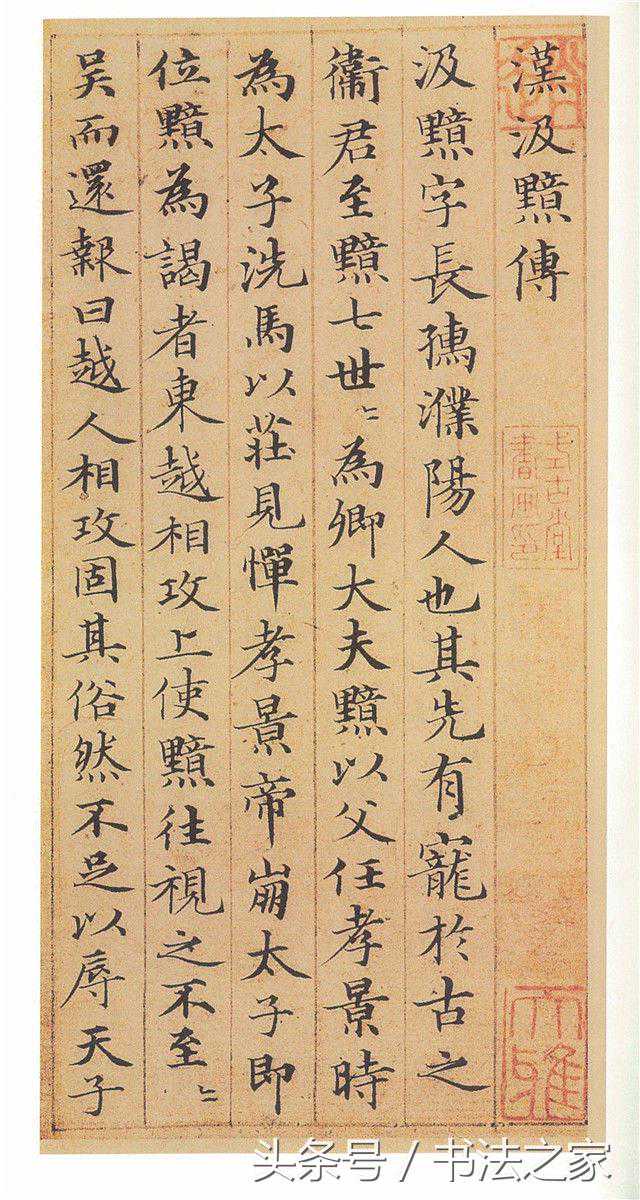 漢汲黯傳
汲黯字長孺濮陽人也其先有寵於古之
衛君至黯七世〻為卿大夫黯以父任孝景時
為太子洗馬以莊見憚孝景帝崩太子即
位黯為謁者東越相攻上使黯往視之不至〻
吳而還報曰越人相攻固其俗然不足以辱天子
大雅
头条号 / 书法之家